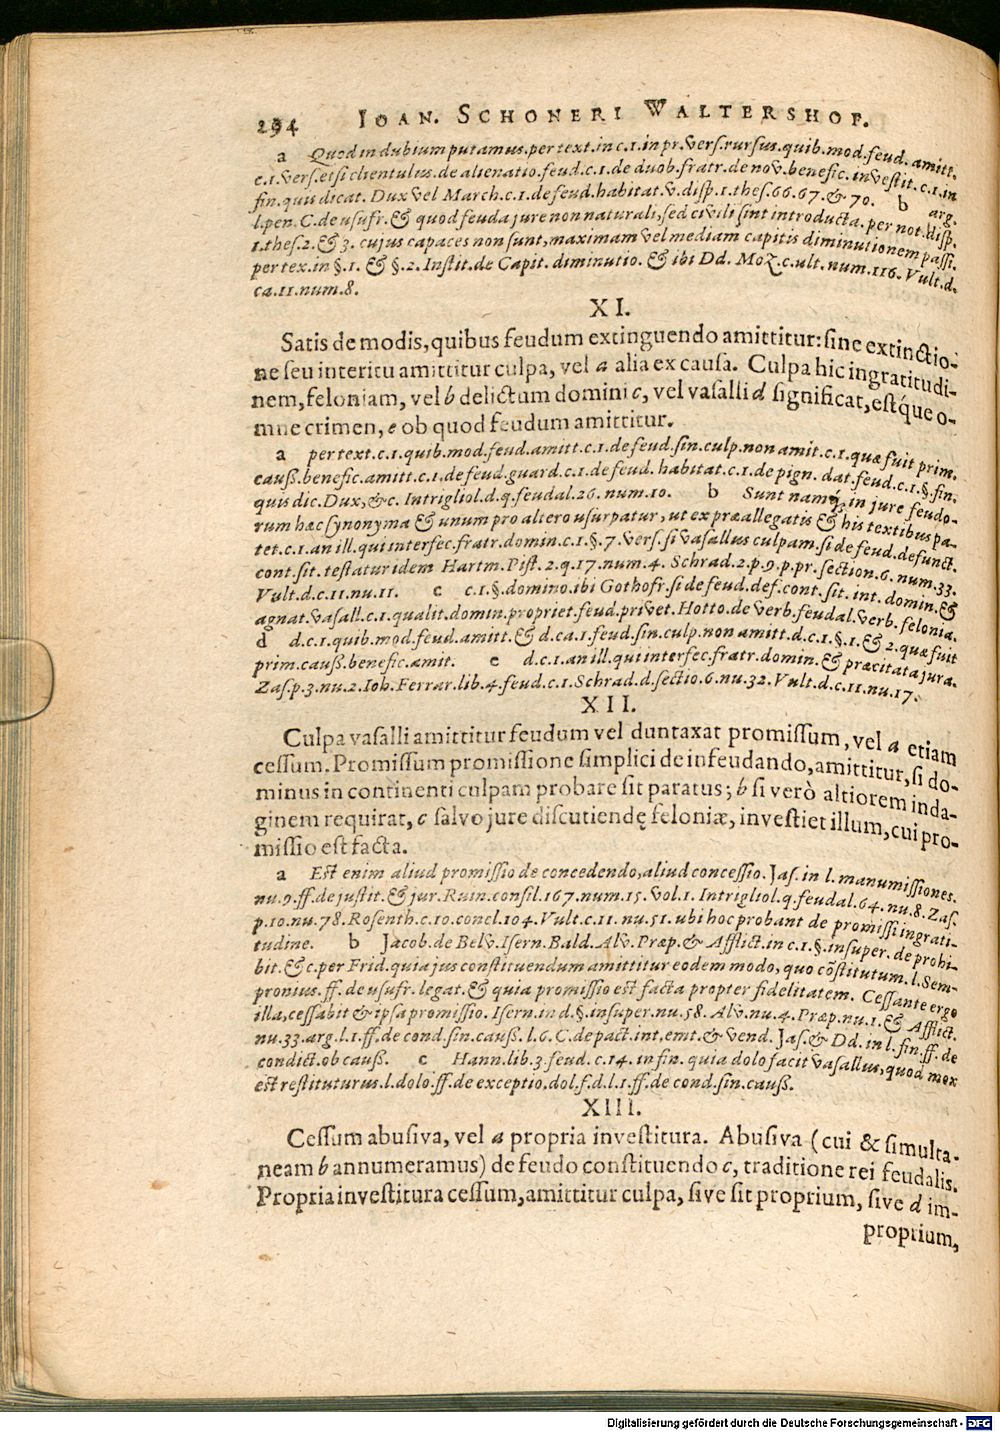 294 IOAN. SCHONERI WALTERSHOF.
a Quod in dubium putamus.per text.in c.1.in pr.vers.rursus.quib.mod.feud.amitt.
c.1.vers.etsi clientulus.de alienatio.feud.c.1.de duob.fratr.de nov.benefic.investit.c.1.in
fin.quis dicat. Dux vel March.c.1.de feud.habitat.v.disp.1.thes.66.67.& 70. b arg.
l.pen.C.de usufr.& quod feuda jure non naturali,sed civili sint introducta.per not.disp.
1.thes.2.& 3. cujus capaces non sunt,maximam vel mediam capitis diminutionem passi.
per tex.in §.1. & §.2.Instit.de Capit.diminutio. & ibi Dd. Moz.c.ult.num.116.Vult.d.
ca.11.num.8.
XI.
Satis de modis,quibus feudum extinguendo amittitur:sine extinctio-
ne seu interitu amittitur culpa, vel a alia ex causa. Culpa hic ingratitudi-
nem,feloniam, vel b delictum domini c, vel vasalli d significat,estq́ue o-
mne crimen, e ob quod feudum amittitur.
a per text.c.1.quib.mod.feud.amitt.c.1.de feud.sin.culp.non amit.c.1.quæ fuit prim.
causs.benefic.amitt.c.1.de feud.guard.c.1.de feud. habitat.c.1.de pign. dat.feud.c.1.§.fin.
quis dic.Dux,&c. Intrigliol.d.q.feudal.26.num.10. b Sunt namq́; in jure feudo-
rum hæc synonyma & unum pro altero usurpatur, ut ex præallegatis & his textibus pa-
tet.c.1.an ill.qui interfec.fratr.domin.c.1.§.7.vers.si vasallus culpam.si de feud.defunct.
cont.sit.testatur idem Hartm.Pist.2.q.17.num.4. Schrad.2.p.9.p.pr.section.6.num.33.
Vult.d.c.11.nu.11. c c.1.§.domino.ibi Gothofr.si de feud.def.cont.sit.int.domin.&
agnat.vasall.c.1.qualit.domin.propriet.feud.privet.Hotto.de verb.feudal.verb.felonia.
d d.c.1.quib.mod.feud.amitt.& d.ca.1.feud.sin.culp.non amitt.d.c.1.§.1.& 2.quæ fuit
prim.causs.benefic.amit. e d.c.1.an ill.qui interfec.fratr.domin.& præcitata jura.
Zas.p.3.nu.2.Ioh.Ferrar.lib.4.feud.c.1.Schrad.d.sectio.6.nu.32.Vult.d.c.11.nu.17.
XII.
Culpa vasalli amittitur feudum vel duntaxat promissum, vel a etiam
cessum.Promissum promissione simplici de infeudando,amittitur,si do-
minus in continenti culpam probare sit paratus; b si verò altiorem inda-
ginem requirat, c salvo jure discutiendę feloniæ, investiet illum,cui pro-
missio est facta.
a Est enim aliud promissio de concedendo,aliud concessio.Jas.in l.manumissiones.
nu.9.ff.de justit.& jur.Ruin.consil.167.num.15.vol.1.Intrigliol.q.feudal.64.nu.8.Zas.
p.10.nu.78.Rosenth.c.10.concl.104.Vult.c.11.nu.51.ubi hoc probant de promissi ingrati-
tudine. b Jacob.de Belv.Isern.Bald.Alv.Præp.& Afflict.in c.1.§.insuper.de prohi-
bit.& c.per Frid.quia jus constituendum amittitur eodem modo, quo cõstitutum.l.Sem-
pronius.ff.de usufr.legat.& quia promissio est facta propter fidelitatem. Cessante ergo
illa,cessabit & ipsa promissio.Isern.in d.§.insuper.nu.58.Alv.nu.4.Præp.nu.1.& Afflict.
nu.33.arg.l.1.ff.de cond.sin.causs.l.6.C.de pact.int.emt.& vend. Jas.& Dd.in l.fin.ff.de
condict.ob causs. c Hann.lib.3.feud.c.14.in fin.quia dolo facit vasallus,quod mox
est restituturus.l.dolo.ff.de exceptio.dol.f.d.l.1.ff.de cond.sin.causs.
XIII.
Cessum abusiva, vel a propria investitura. Abusiva (cui & simulta-
neam b annumeramus) de feudo constituendo c, traditione rei feudalis.
Propria investitura cessum,amittitur culpa, sive sit proprium, sive d im-
proprium,
Digitalisierung gefördert durch die Deutsche Forschungsgemeinschaft - DFG